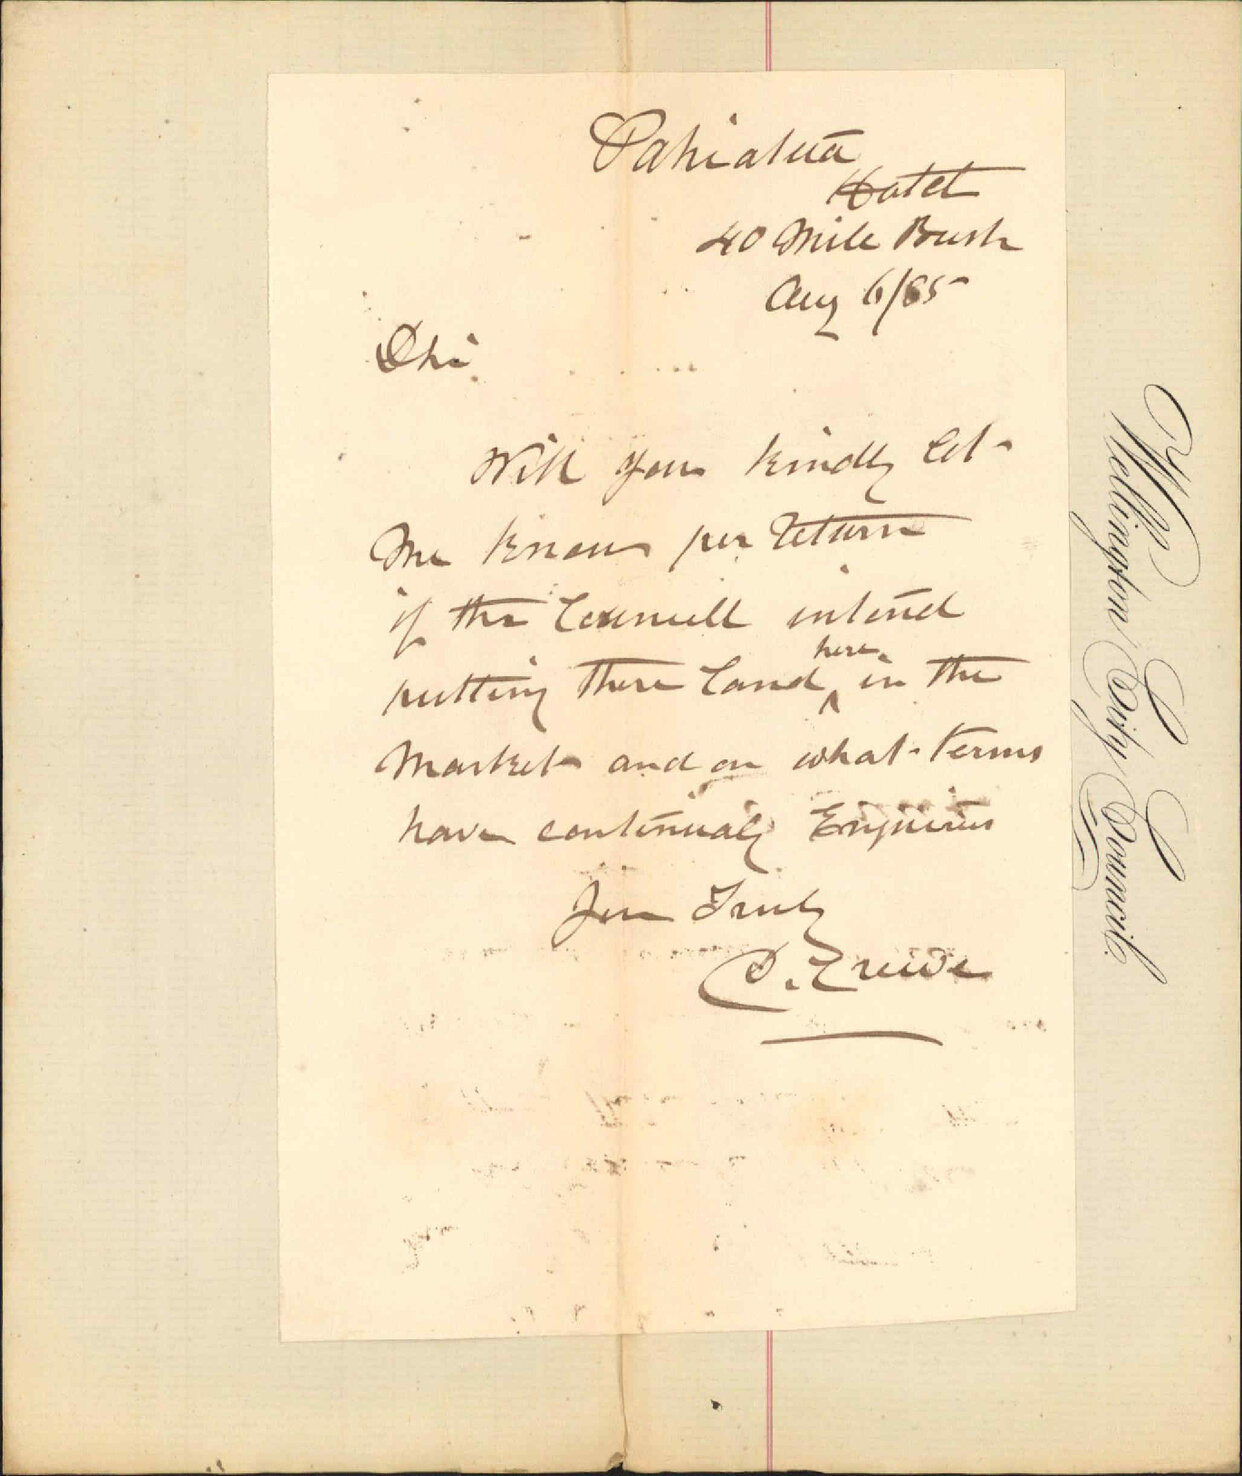 Pahiatua
Hotel
40 Mile Bush
Aug 6/85
Will you kindly let
me know per return
if the Councill intend
putting there Land here in the
Market and on what terms
have continualy Enquiries
Truly
Wellington City Council